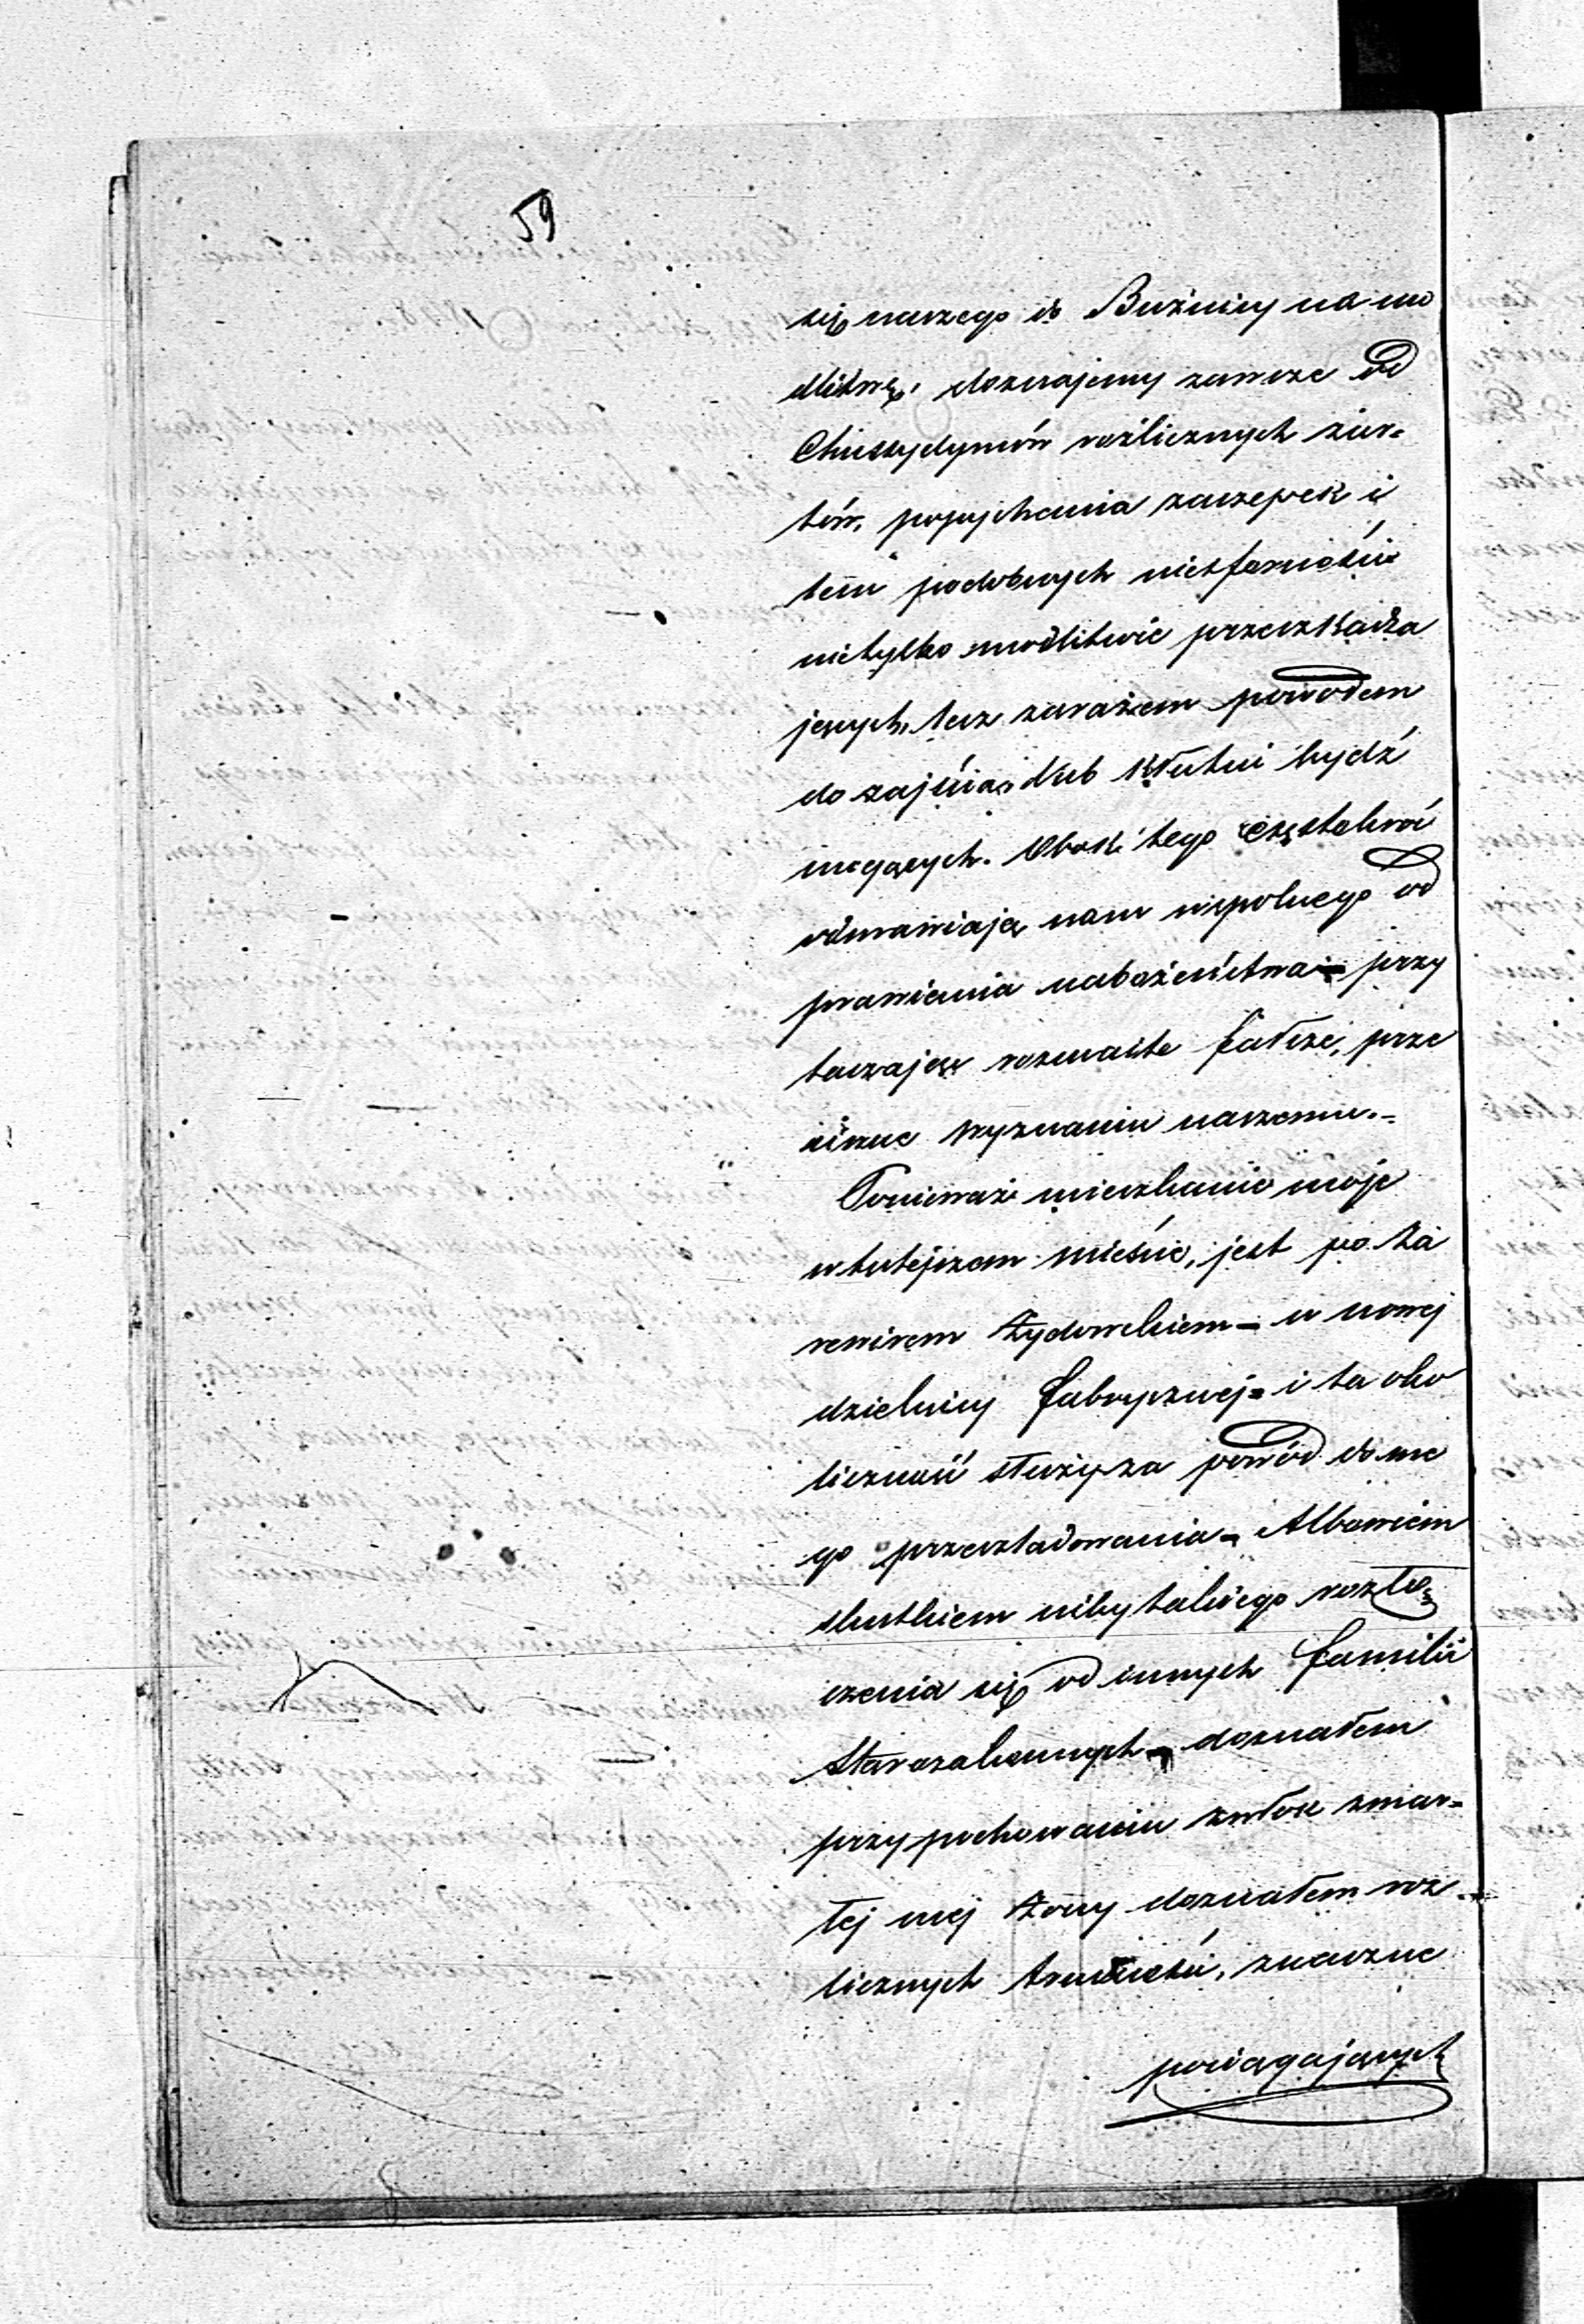 59
się naszego do Bużnicy na mo
dlitwę, doznajemy zawsze od
Chussydymów rozlicznych żar-
tów, popychania zaczepek i
tem podobnych niesforności
nietylko modlitwie przeszkadza
jących, lecz zarazem powodem
do zajścia, lub kłutni bydź
mogących. Obok tego częstokroć
odmawiają nam wspolnego od
prawiania nabożeństwa - przy
taczając rozmaite fałsze, prze
ciwne wyznaniu naszemu.-
Ponieważ mieszkanie moje
w tutejszem mieście, jest po za
rewirem Żydowskiem - w nowej
dzielnicy fabrycznej - i ta oko
liczność służy za powód do me
go prześladowania - Albowiem
skutkiem niby takiego rozłą
czenia się od innych familii
Starozakonnych - doznałem
przy pochowaniu zwłok zmar-
łej mej Żony doznałem roz
licznych trudności, znaczne
pociągających